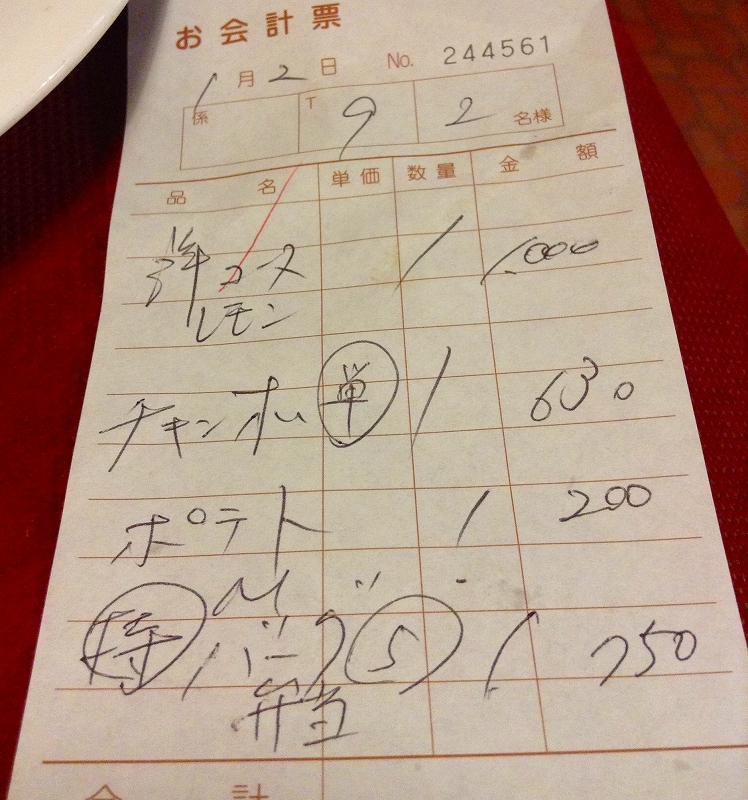 お会計票
1月2日 No. 244561
係 T 9 2 名様
品名 単価 数量 金額
洋コース 1 1,000
レモン
チキンオム 単 1 630
ポテト 1 200
M
特 バーグ S 1 750
弁当
合計